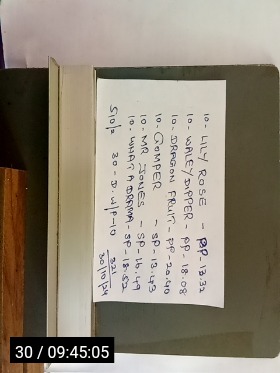 10- LILY ROSE - PP-13.32
10- WALEY DIPPER - PP-18.08
10- DRAGON FRUIT - PP-20.40
10- GOMPER - SP-13.43
10- MR JONES - SP-16.49
10- WHAT A DRAMA - SP-18.52
30-D.W/P-10
321
30/10/24
30 / 09:45:05